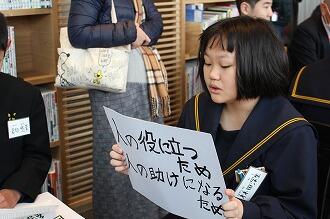 人の役に立つ
ため
人の助けになる
ため